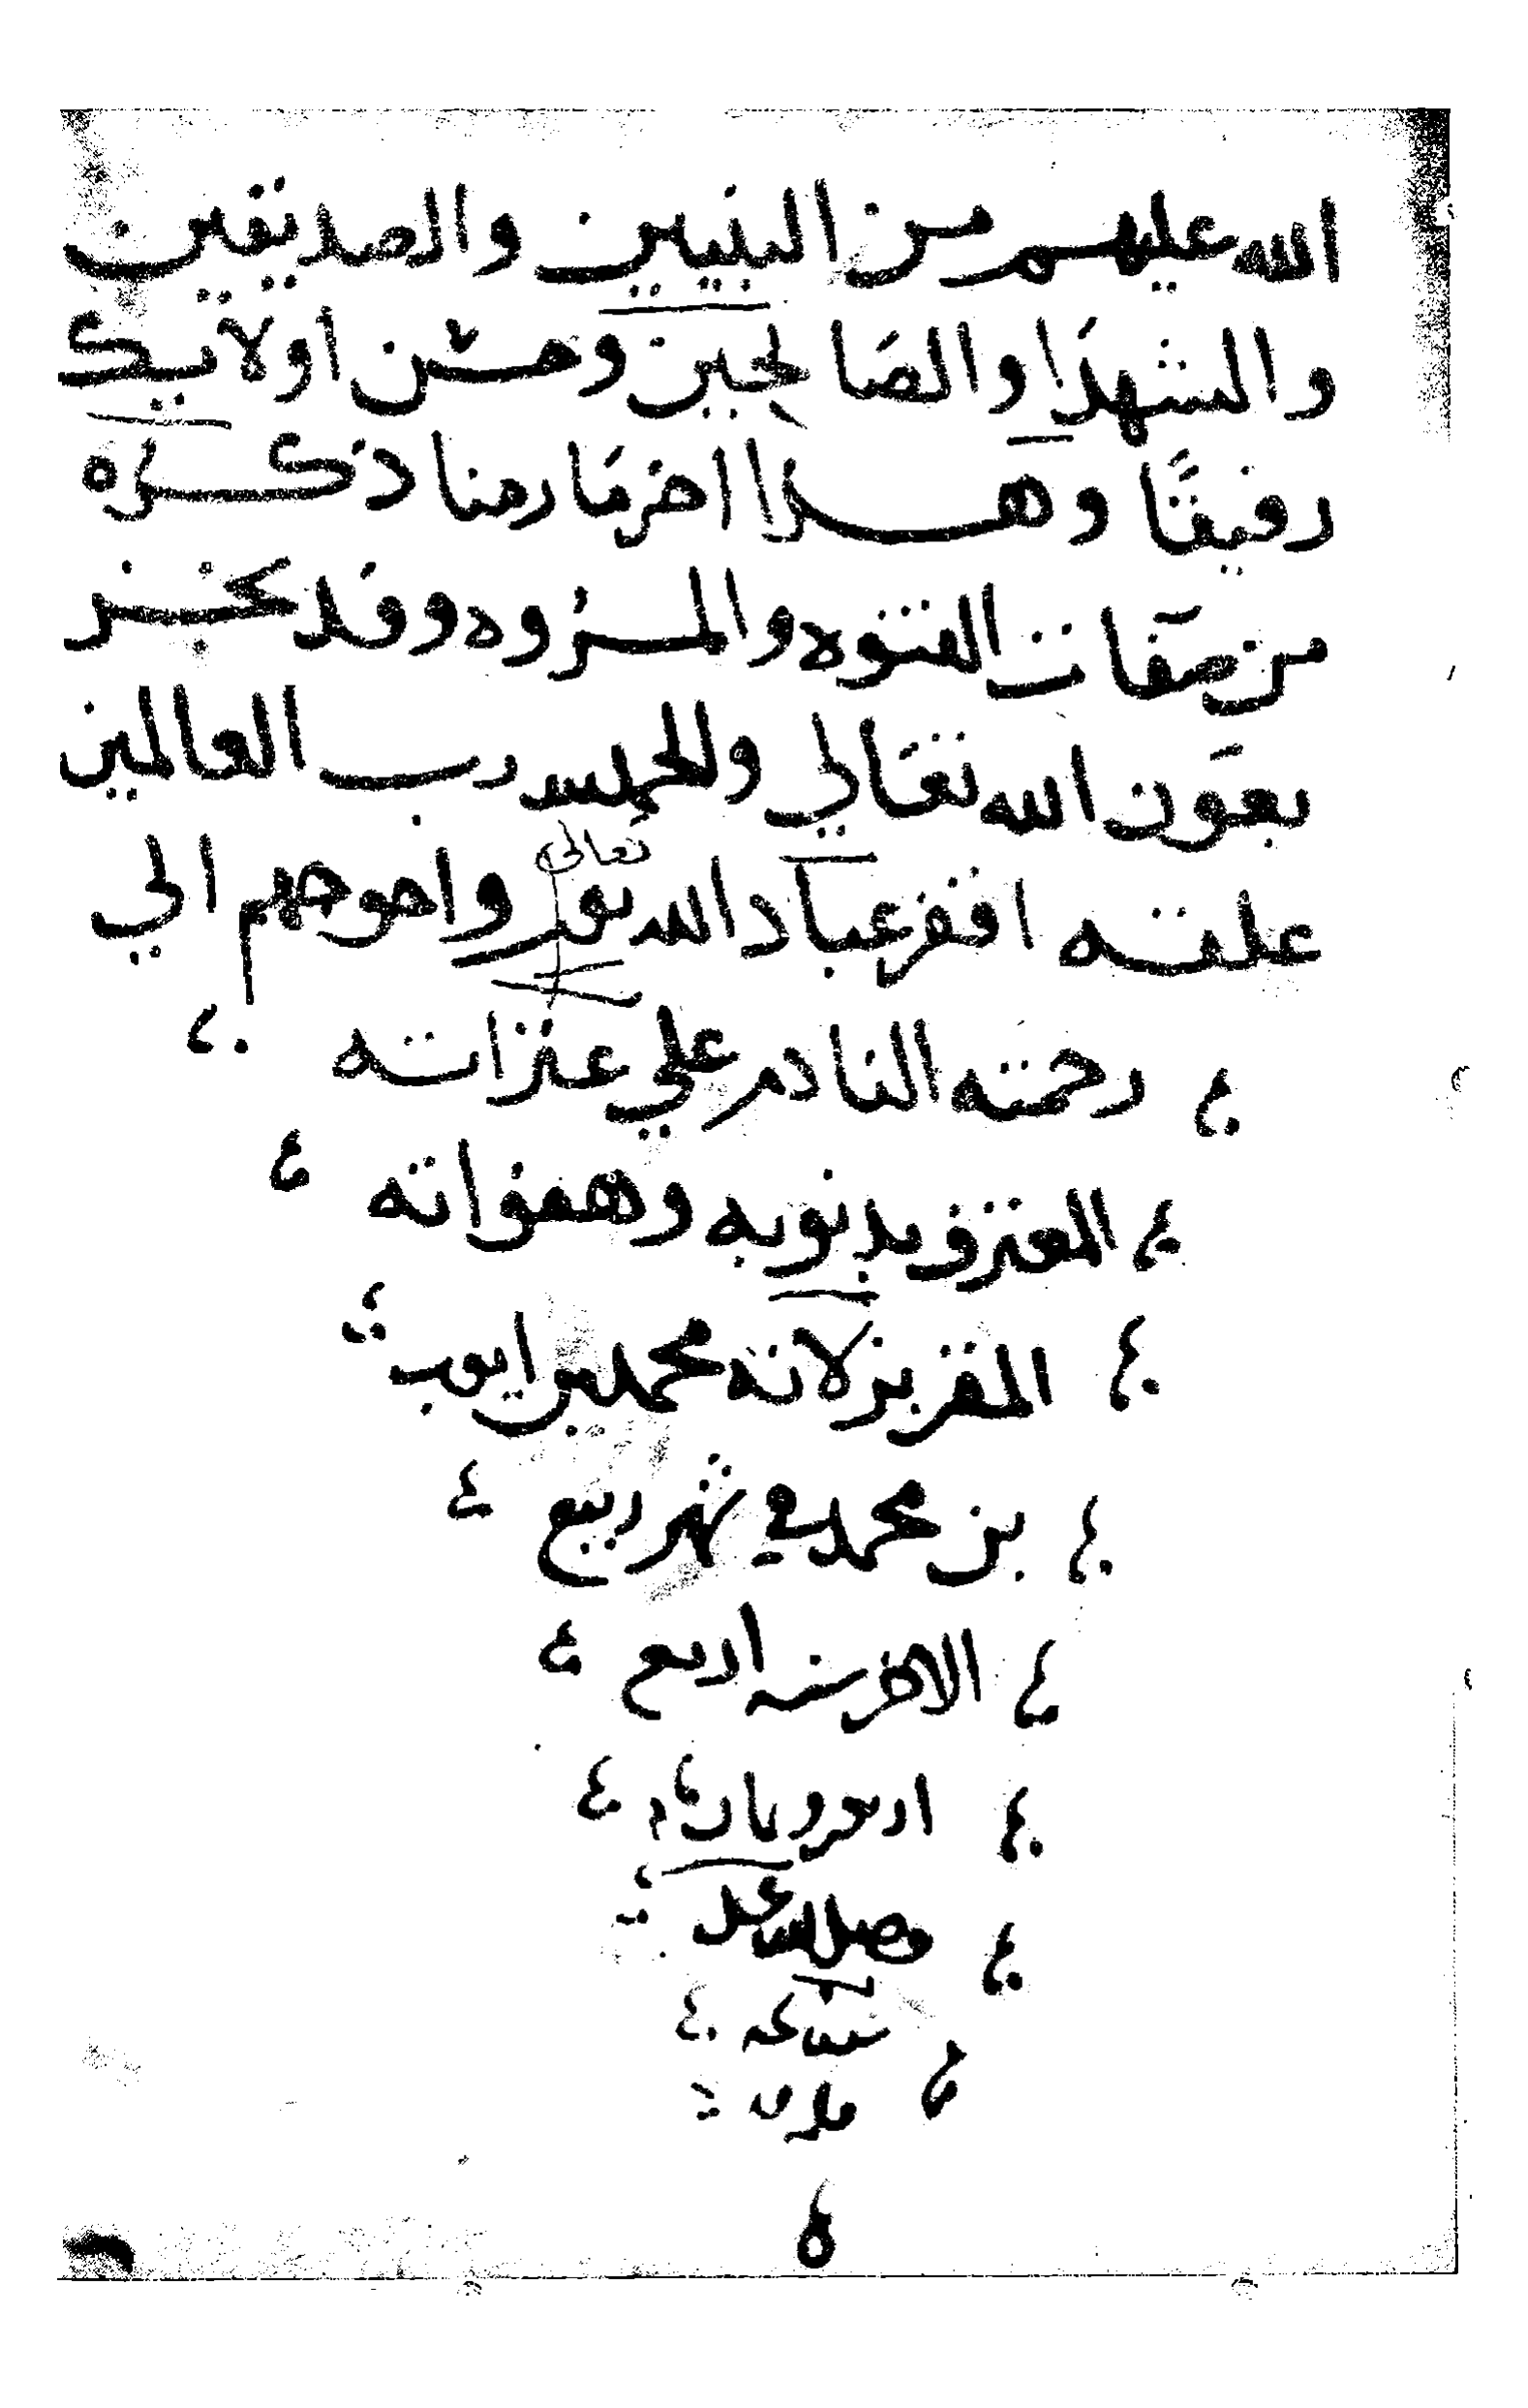 الله عليهم من النبيين والصديقين
والشهدا والصالحين وحسن اولايك
رفيقًا وهذا اخر ما رمنا ذكره
من صفات الفتوه والمروه وقد نجز
بعون الله تعالي وللحمد لله رب العالمين
تعالى
علقه افقر عباد الله واحوجهم الي
رحمته النادم علي عثراته
المعترف بذنوبه وهفواته
المقر بزلاته محمد بن ايوب
بن محمد في شهر ربيع
الاخر سنه اربع